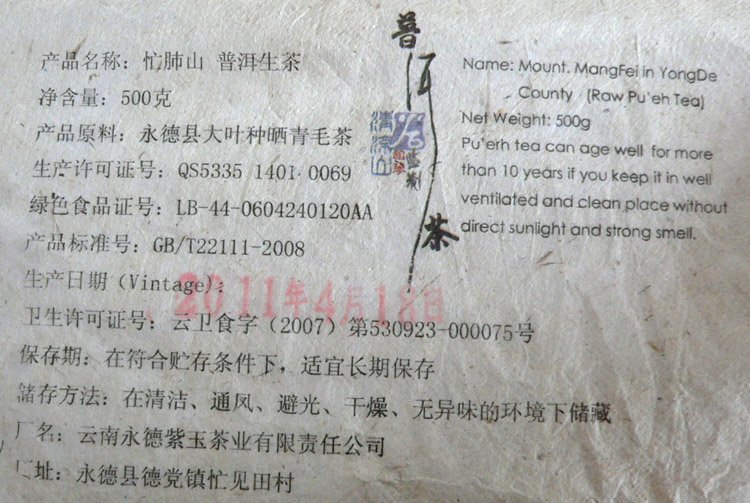 产品名称：忙肺山 普洱生茶
净含量：500克
产品原料：永德县大叶种晒青毛茶
生产许可证号：QS5335 1401 0069
绿色食品证号：LB-44-0604240120AA
产品标准号：GB/T22111-2008
生产日期（Vintage）：2011年4月18日
卫生许可证号：云卫食字（2007）第530923-000075号
保存期：在符合贮存条件下，适宜长期保存
储存方法：在清洁、通风、避光、干燥、无异味的环境下储藏
厂名：云南永德紫玉茶业有限责任公司
厂址：永德县德党镇忙见田村
普洱茶
Name: Mount. MangFei in YongDe
County (Raw Pu'eh Tea)
Net Weight: 500g
Pu'erh tea can age well for more
than 10 years if you keep it in well
ventilated and clean place without
direct sunlight and strong smell.